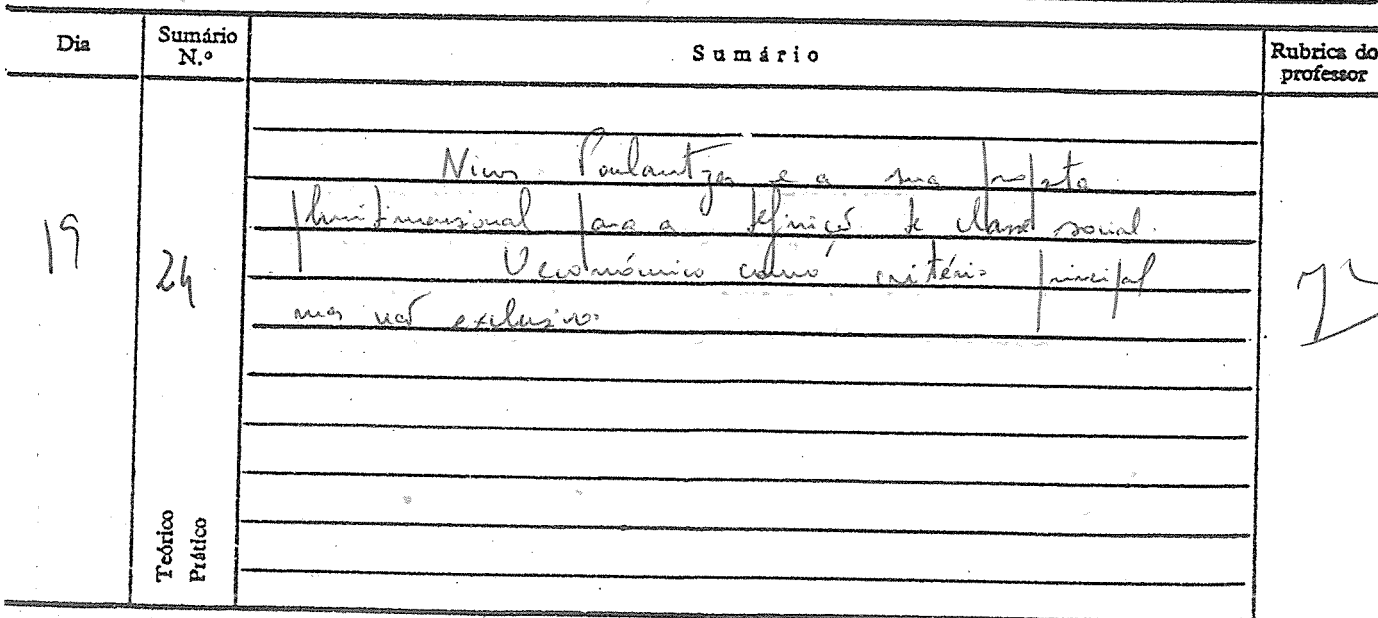 Dia Sumário N.º Sumário Rubrica do professor
19 24
Nicos Poulantzas e a sua proposta
pluridimensional para a definição de classe social.
O económico como critério principal
mas não exclusivo.
Teórico
Prático